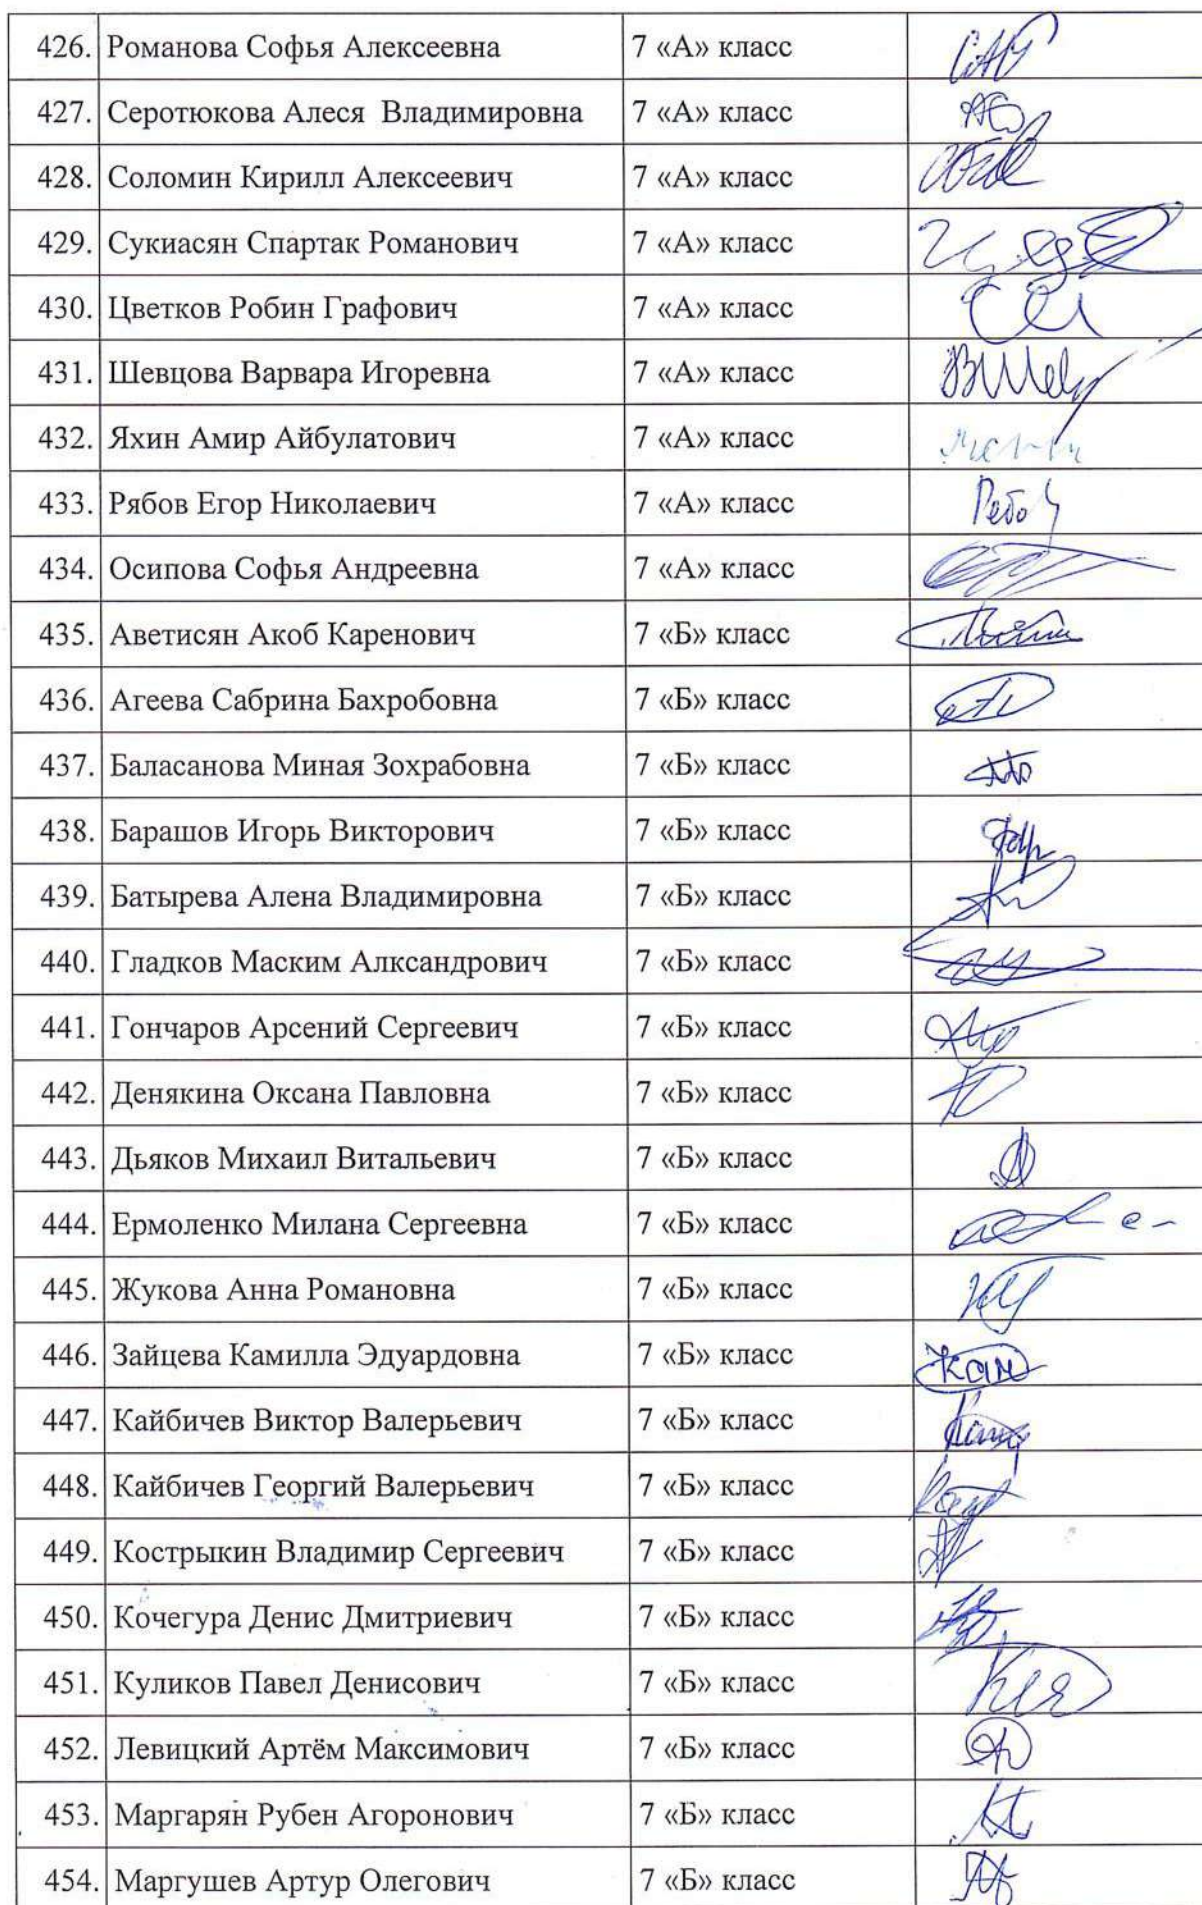 426. Романова Софья Алексеевна 7 «А» класс
427. Серотюкова Алеся Владимировна 7 «А» класс
428. Соломин Кирилл Алексеевич 7 «А» класс
429. Сукиасян Спартак Романович 7 «А» класс
430. Цветков Робин Графович 7 «А» класс
431. Шевцова Варвара Игоревна 7 «А» класс
432. Яхин Амир Айбулатович 7 «А» класс
433. Рябов Егор Николаевич 7 «А» класс
434. Осипова Софья Андреевна 7 «А» класс
435. Аветисян Акоб Каренович 7 «Б» класс
436. Агеева Сабрина Бахробовна 7 «Б» класс
437. Баласанова Миная Зохрабовна 7 «Б» класс
438. Барашов Игорь Викторович 7 «Б» класс
439. Батырева Алена Владимировна 7 «Б» класс
440. Гладков Маским Алксандрович 7 «Б» класс
441. Гончаров Арсений Сергеевич 7 «Б» класс
442. Денякина Оксана Павловна 7 «Б» класс
443. Дьяков Михаил Витальевич 7 «Б» класс
444. Ермоленко Милана Сергеевна 7 «Б» класс
445. Жукова Анна Романовна 7 «Б» класс
446. Зайцева Камилла Эдуардовна 7 «Б» класс
447. Кайбичев Виктор Валерьевич 7 «Б» класс
448. Кайбичев Георгий Валерьевич 7 «Б» класс
449. Кострыкин Владимир Сергеевич 7 «Б» класс
450. Кочегура Денис Дмитриевич 7 «Б» класс
451. Куликов Павел Денисович 7 «Б» класс
452. Левицкий Артём Максимович 7 «Б» класс
453. Маргарян Рубен Агоронович 7 «Б» класс
454. Маргушев Артур Олегович 7 «Б» класс